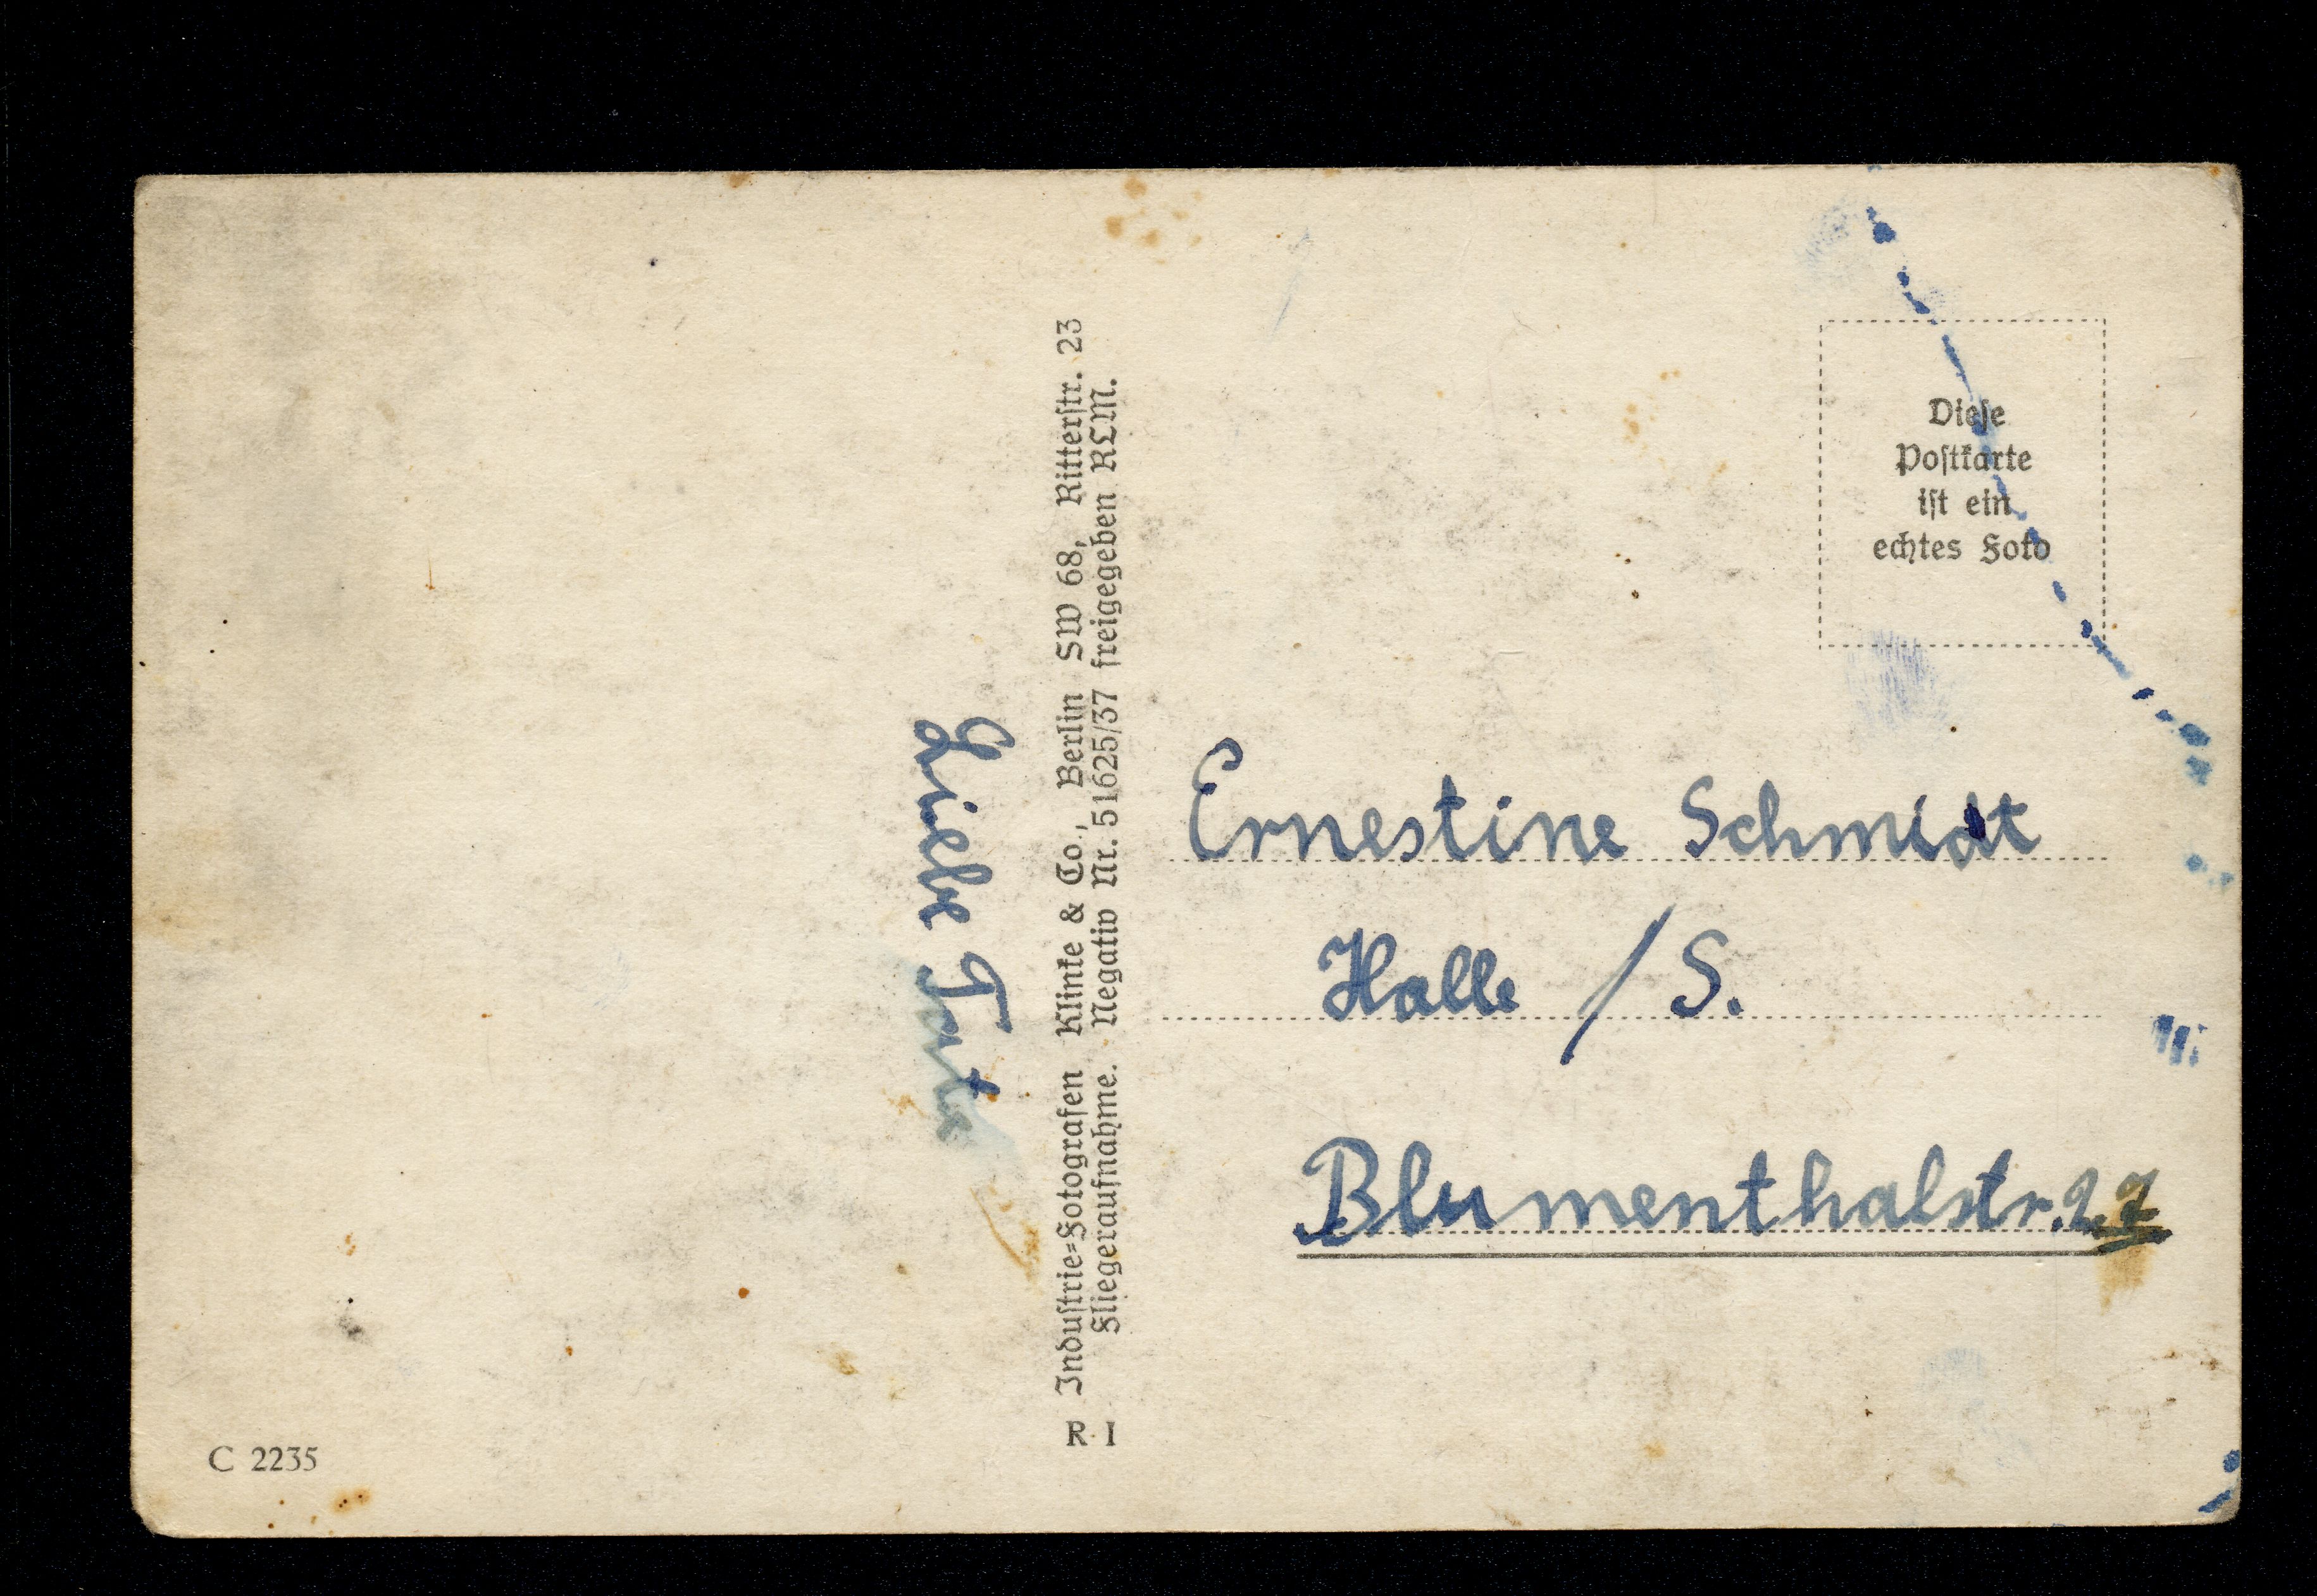 Liebe Tante
Industrie=Fotografen Klinke & Co., Berlin SW 68, Ritterstr. 23
Fliegeraufnahme. Negativ Nr. 51625/37 freigegeben RLM.
R I
C 2235
Diese
Postkarte
ist ein
echtes Foto
Ernestine Schmidt
Halle / S.
Blumenthalstr. 27